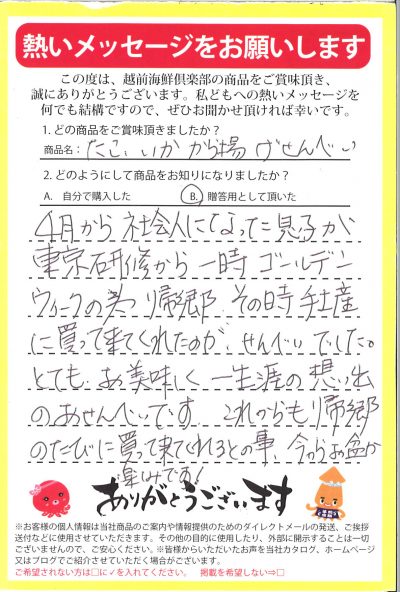 熱いメッセージをお願いします
この度は、越前海鮮倶楽部の商品をご賞味頂き、
誠にありがとうございます。私どもへの熱いメッセージを
何でも結構ですので、ぜひお聞かせ頂ければ幸いです。
1. どの商品をご賞味頂きましたか？
商品名： たこ、いか から揚げせんべい
2. どのようにして商品をお知りになりましたか？
A. 自分で購入した B. 贈答用として頂いた
4月から社会人になった息子が
東京研修から一時ゴールデン
ウィークの為 帰郷 その時手土産
に買って来てくれたのが、せんべいでした。
とても お美味しく 一生涯の想い出
のおせんべいです これからも帰郷
のたびに買って来てくれるとの事、今からお盆が
楽しみです!
ありがとうございます
※お客様の個人情報は当社商品のご案内や情報提供のためのダイレクトメールの発送、ご挨拶
送付などに使用させていただきます。その他の目的に使用したり、外部に開示することは一切
ございませんので、ご安心ください。※皆様からいただいたお声を当社カタログ、ホームページ
又はブログでご紹介させていただく場合がございます。
ご希望されない方は□に✓を入れてください。 掲載を希望しない⇒□